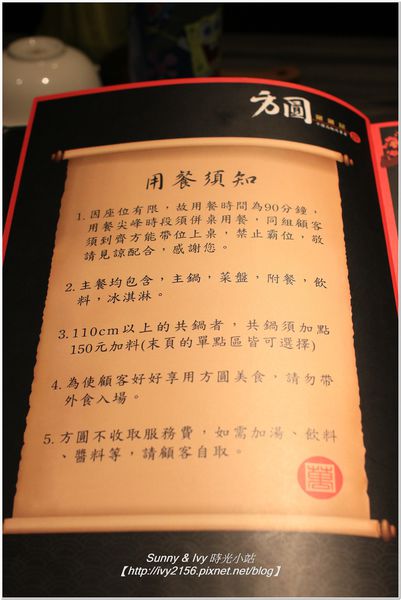 方圓
用餐須知
1. 因座位有限，故用餐時間為90分鐘，
用餐尖峰時段須併桌用餐，同組顧客
須到齊方能帶位上桌，禁止霸位，敬
請見諒配合，感謝您。
2. 主餐均包含，主鍋，菜盤，附餐，飲
料，冰淇淋。
3. 110cm以上的共鍋者，共鍋須加點
150元加料(末頁的單點區皆可選擇)
4. 為使顧客好好享用方圓美食，請勿帶
外食入場。
5. 方圓不收取服務費，如需加湯、飲料
、醬料等，請顧客自取。
萬
Sunny & Ivy 時光小站
【http://ivy2156.pixnet.net/blog】